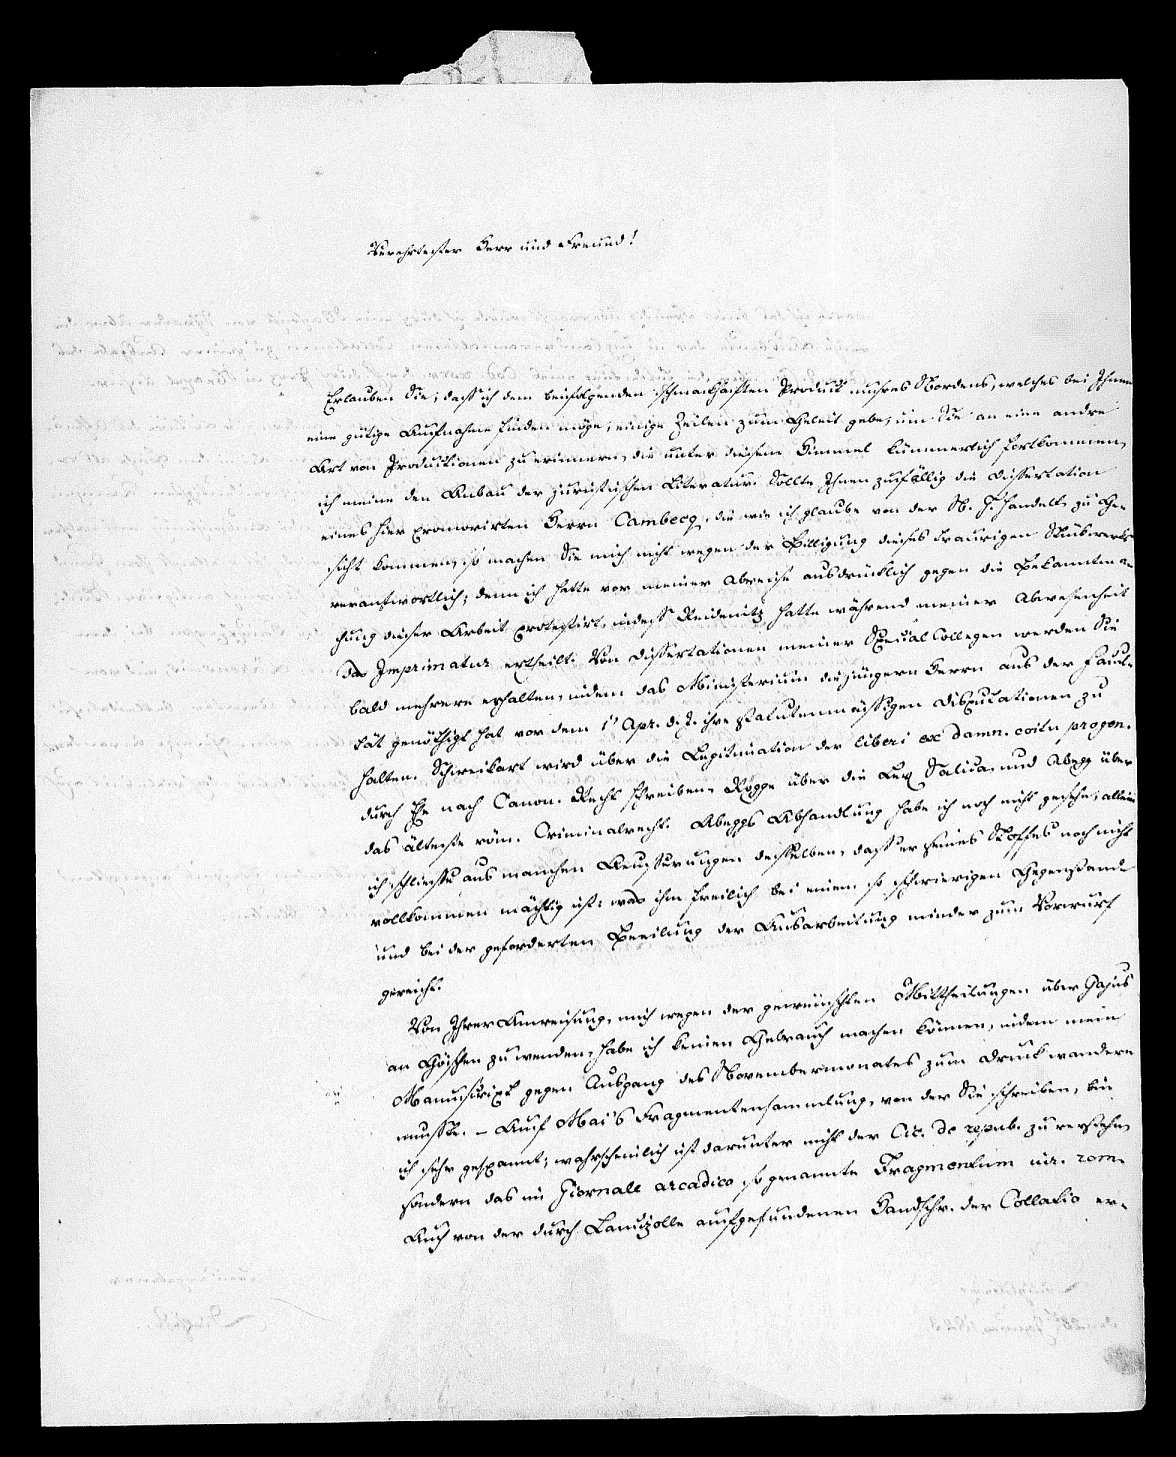 Verehrtester Herr und Freund!
Erlauben Sie, dass ich dem beifolgenden schmackhaften Product unsres Nordens, welches bei Ihnen
eine gütige Aufnahme finden möge, einige Zeilen zum Geleit gebe, um Sie an eine andre
Art von Productionen zu erinnern, die unter diesem Himmel kümmerlich fortkommen,
ich meine den Anbau der juristischen Literatur. Sollte Ihnen zufällig die Dissertation
eines hier promovirten Herrn Cambecq, die wie ich glaube von der N. J. handelt, zu Ge-
sicht kommen, so machen Sie mich nicht wegen der Billigung dieses traurigen Machwerks
verantwortlich; denn ich hatte vor meiner Abreise ausdrücklich gegen die Bekanntma-
chung dieser Arbeit protestirt, indess Reidenitz hatte während meiner Abwesenheit
das Imprimatur ertheilt. Von Dissertationen meiner Special Collegen werden Sie
bald mehrere erhalten, indem das Ministerium die jüngern Herrn aus der Facul-
tät genöthigt hat vor dem 1t Apr. d. J. ihre statutenmässigen Disputationen zu
halten. Schweikart wird über die Legitimation der liberi ex damn. coitu progen.
durch Ehe nach Canon. Recht schreiben, Rogge über die Lex Salica, und Abegg über
das älteste röm. Criminalrecht. Abeggs Abhandlung habe ich noch nicht gesehn; allein
ich schliesse aus manchen Aeusserungen desselben, dass er seines Stoffes noch nicht
vollkommen mächtig ist: was ihm freilich bei einem so schwierigen Gegenstande
und bei der geforderten Beeilung der Ausarbeitung minder zum Vorwurf
gereicht.
Von Ihrer Anweisung, mich wegen der gewünschten Mittheilungen über Gajus
an Göschen zu wenden, habe ich keinen Gebrauch machen können, indem mein
Manuscript gegen Ausgang des Novembermonates zum Druck wandern
musste. – Auf Mai's Fragmentensammlung, von der Sie schreiben, bin
ich sehr gespannt; wahrscheinlich ist darunter nicht der Cic. de repub. zu verstehn,
sondern das im Giornale arcadico so genannte Fragmentum iur. rom.
Auch von der durch Lancizolle aufgefundenen Handschr. der Collatio er-